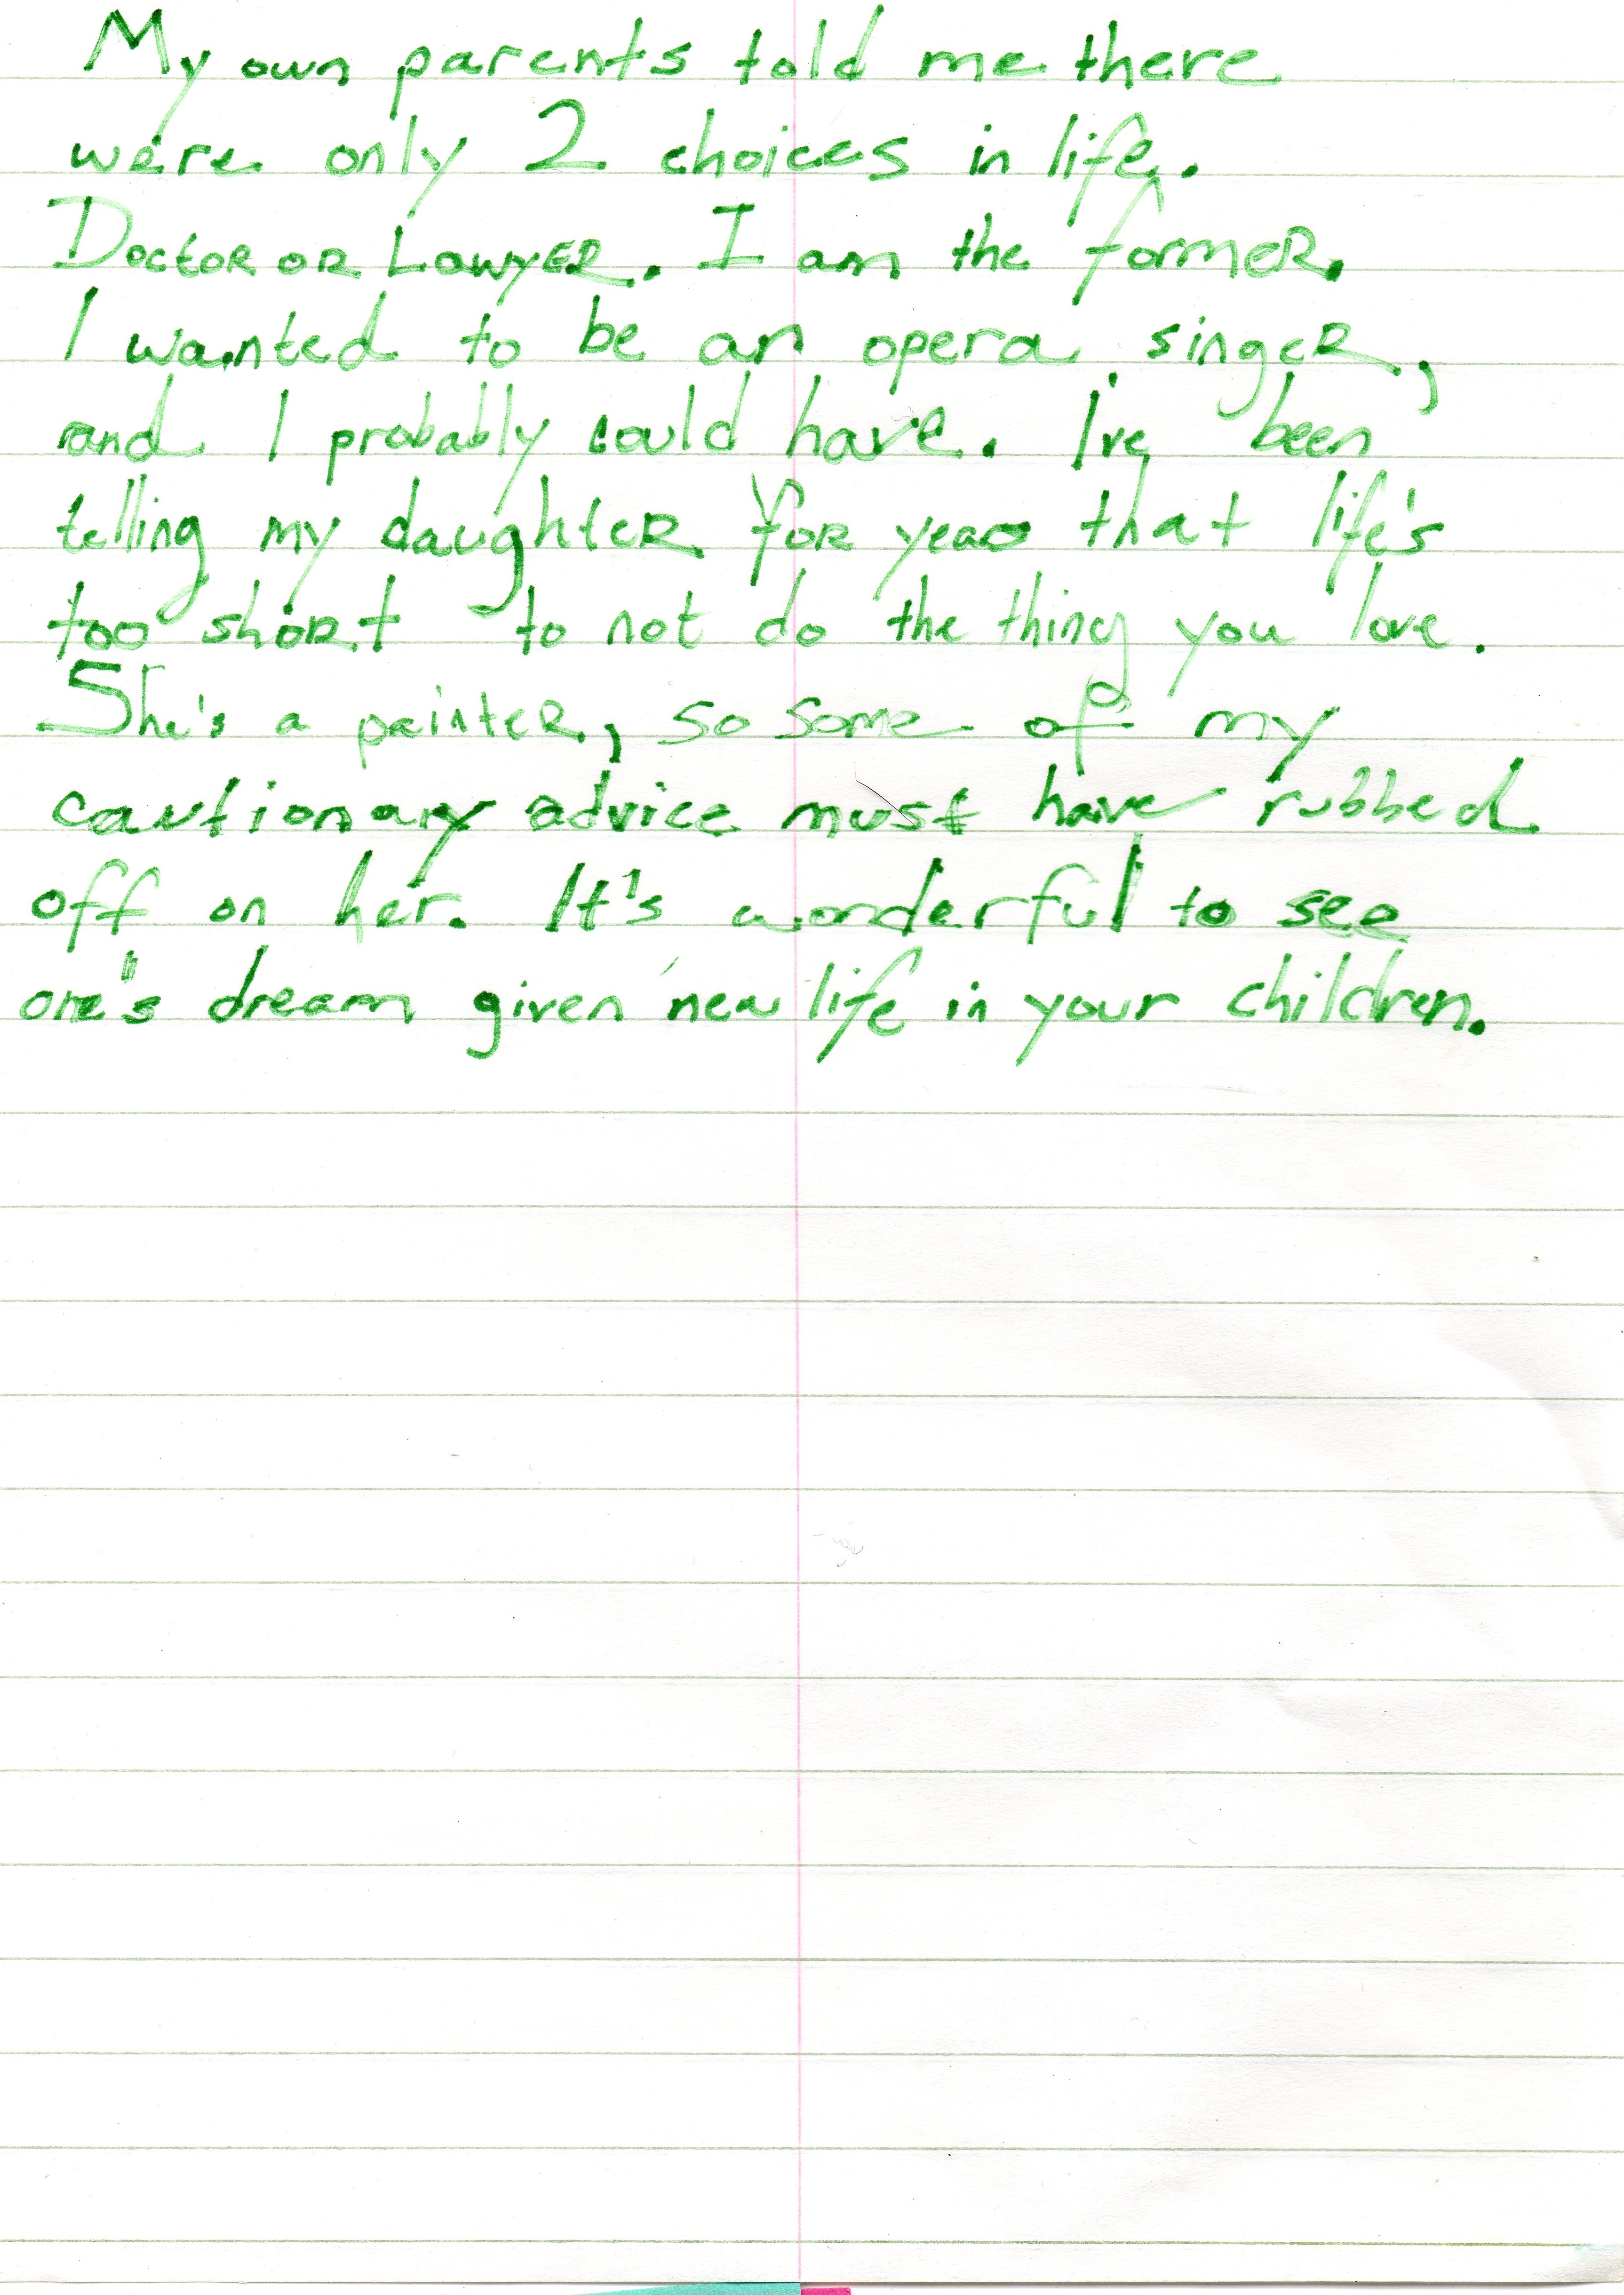 My own parents told me there
were only 2 choices in life.
Doctor or Lawyer. I am the former.
I wanted to be an opera singer,
and I probably could have. I've been
telling my daughter for years that life's
too short to not do the thing you love.
She's a painter, so some of my
cautionary advice must have rubbed
off on her. It's wonderful to see
one's dream given new life in your children.